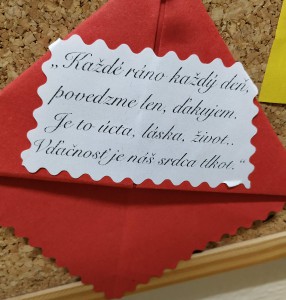 „Každé ráno každý deň,
povedzme len, ďakujem.
Je to úcta, láska, život..
Vďačnosť je náš srdca tlkot.“